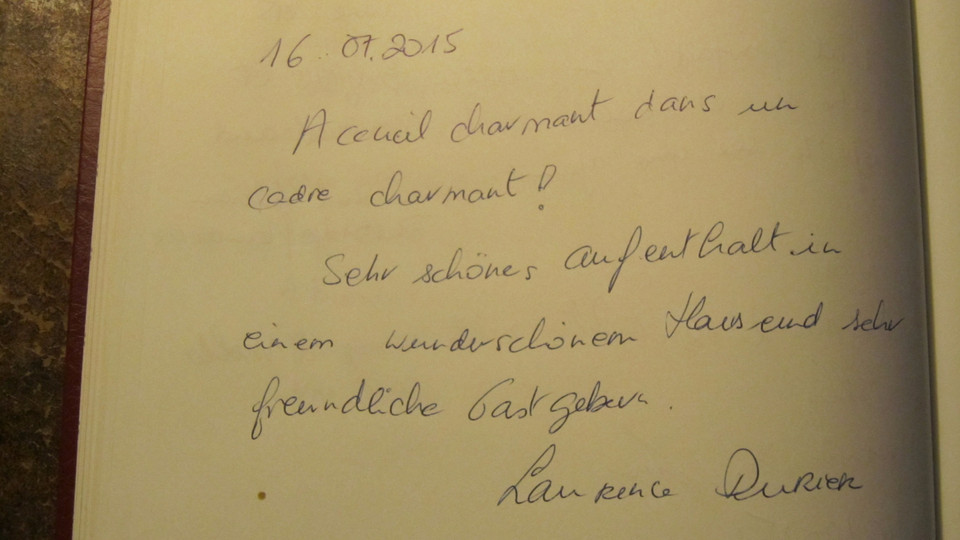 16.07.2015
Accueil charmant dans un
cadre charmant !
Sehr schönes Aufenthalt in
einem wunderschönem Haus und sehr
freundliche Gastgebern.
Laurence Durier